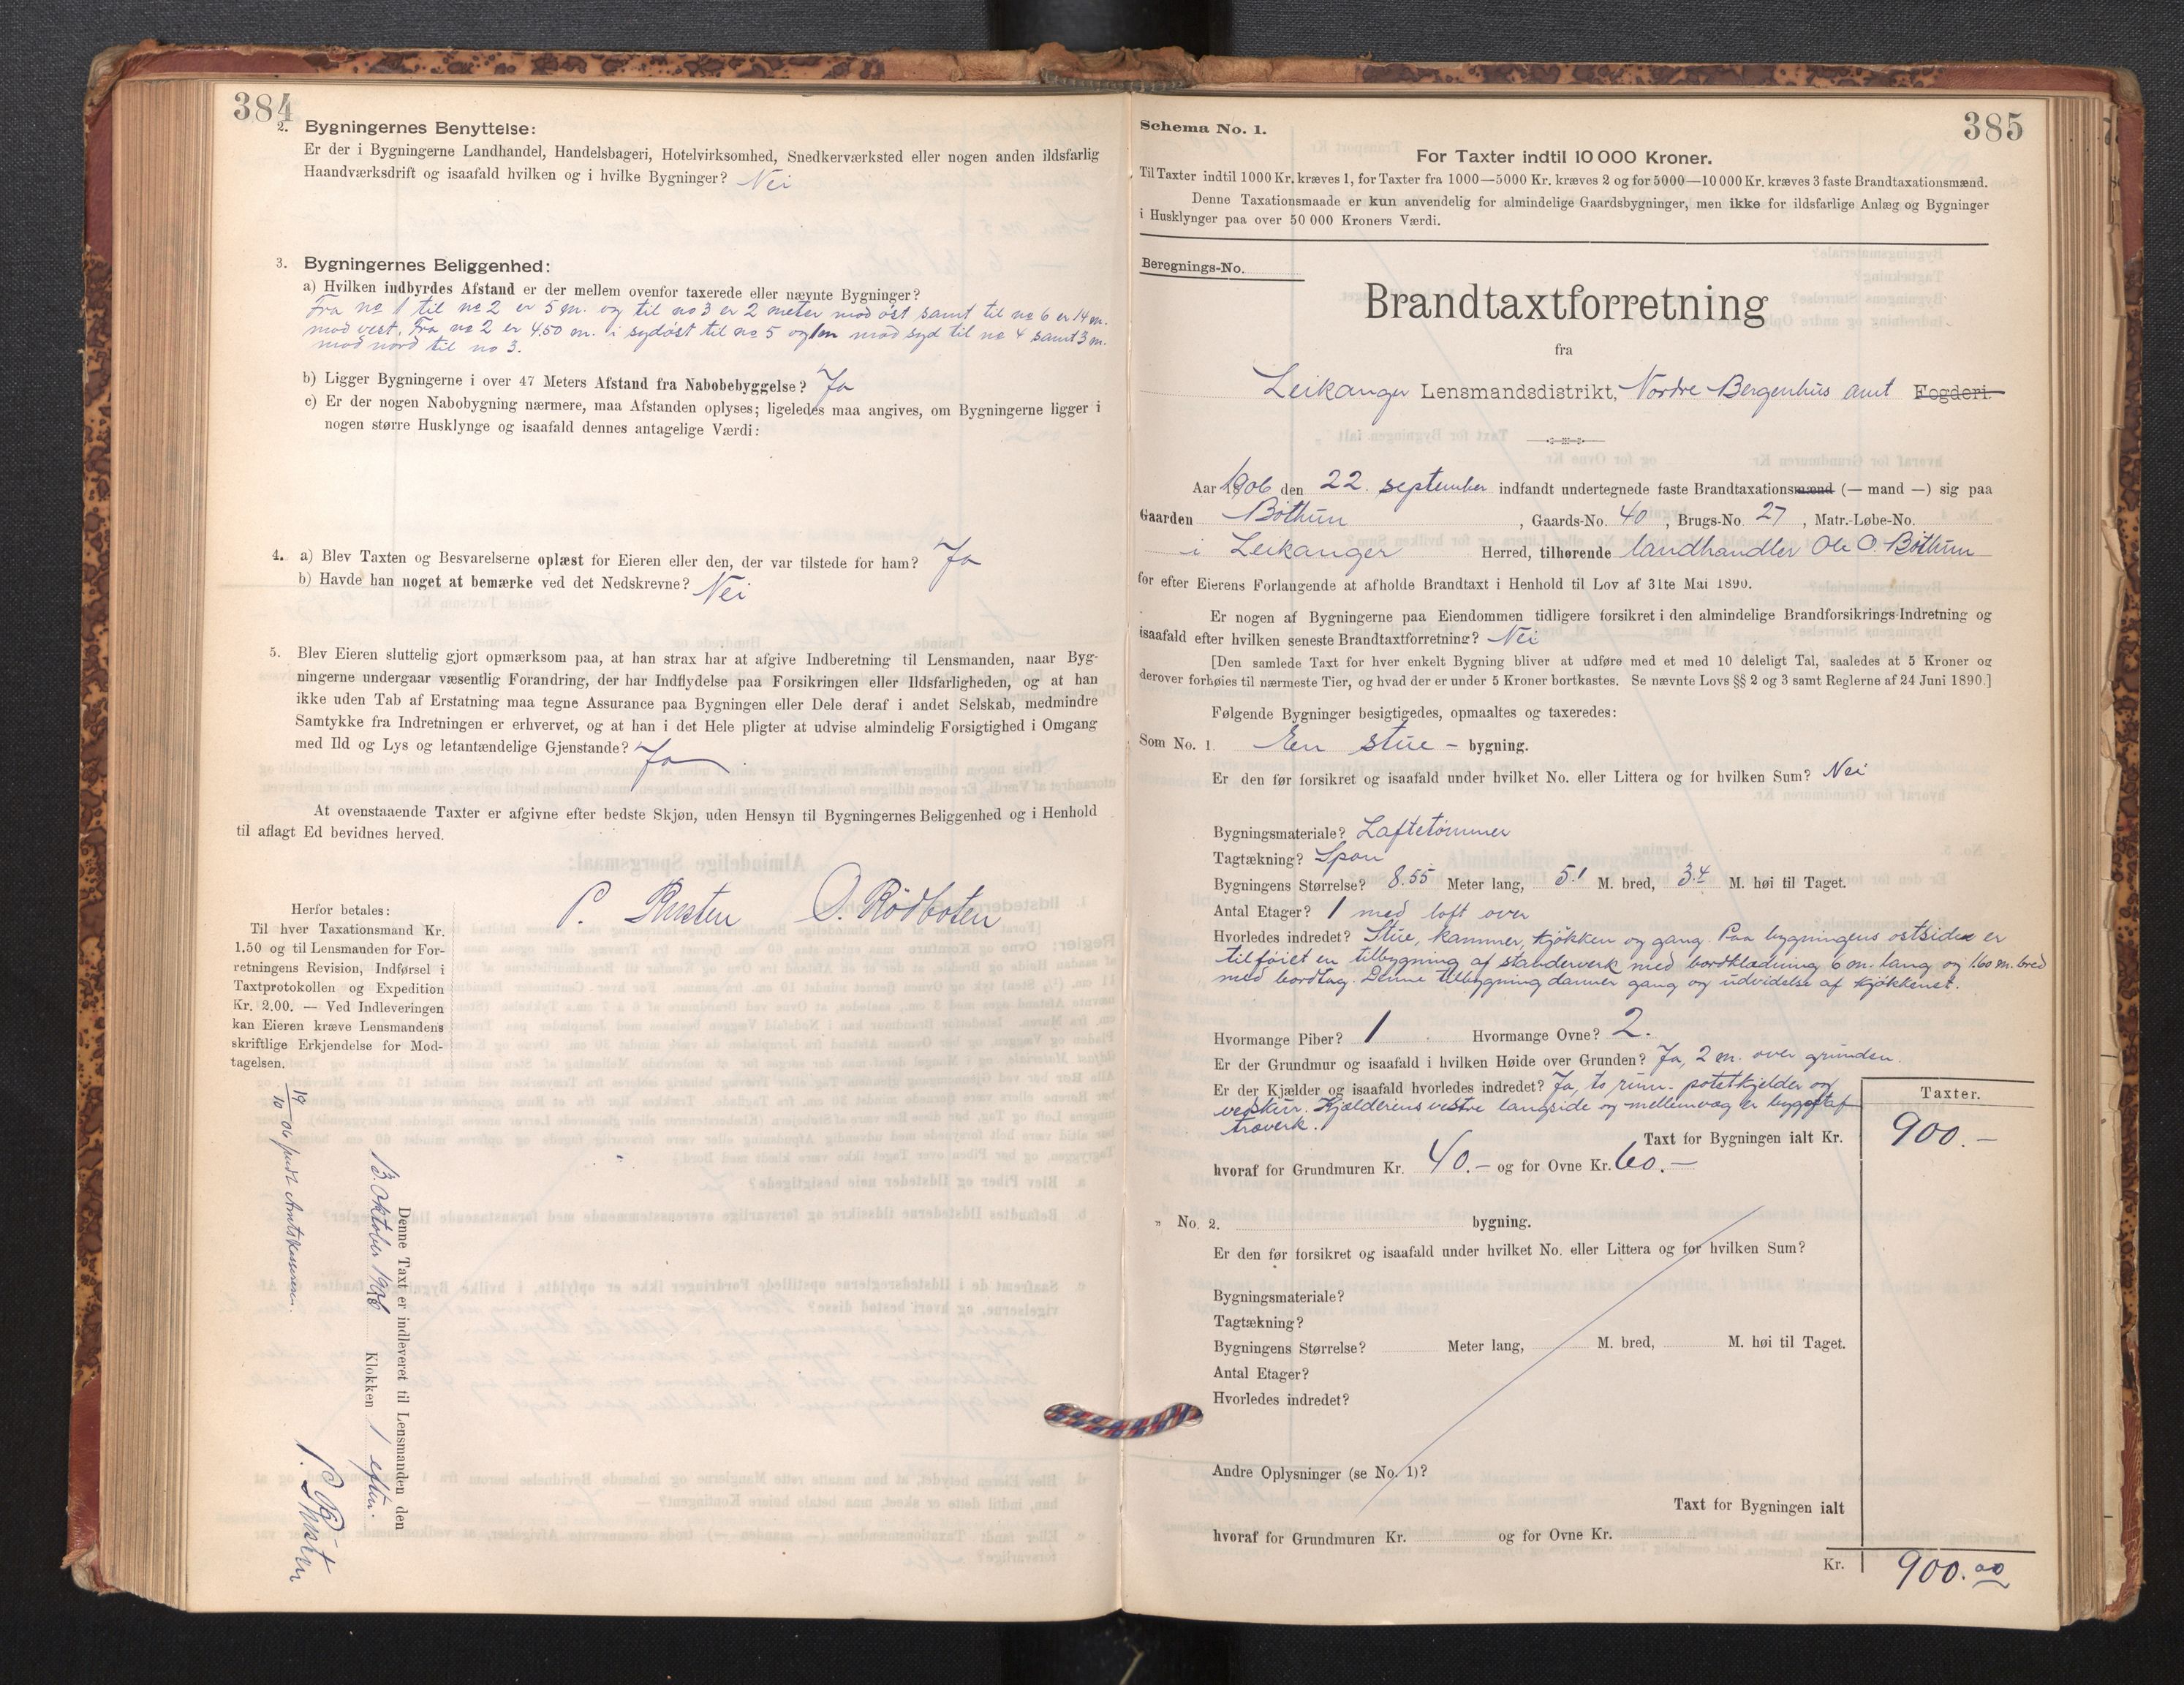 384
2. Bygningernes Benyttelse:
Er der i Bygningerne Landhandel, Handelsbageri, Hotelvirksomhed, Snedkerværksted eller nogen anden ildsfarlig
Haandværksdrift og isaafald hvilken og i hvilke Bygninger? Nei
3. Bygningernes Beliggenhed:
a) Hvilken indbyrdes Afstand er der mellem ovenfor taxerede eller nævnte Bygninger?
Fra no 1 til no 2 er 5 m. og til no 3 er 2 meter mod øst samt til no 6 er 14 m.
mod vest. Fra no 2 er 4.50 m. i sydøst til no 5 og 1 m mod syd til no 4 samt 3 m.
mod nord til no 3.
b) Ligger Bygningerne i over 47 Meters Afstand fra Nabobebyggelse? Ja
c) Er der nogen Nabobygning nærmere, maa Afstanden oplyses; ligeledes maa angives, om Bygningerne ligger i
nogen større Husklynge og isaafald dennes antagelige Værdi:
4. a) Blev Taxten og Besvarelserne oplæst for Eieren eller den, der var tilstede for ham? Ja
b) Havde han noget at bemærke ved det Nedskrevne? Nei
5. Blev Eieren sluttelig gjort opmærksom paa, at han strax har at afgive Indberetning til Lensmanden, naar Byg-
ningerne undergaar væsentlig Forandring, der har Indflydelse paa Forsikringen eller Ildsfarligheden, og at han
ikke uden Tab af Erstatning maa tegne Assurance paa Bygningen eller Dele deraf i andet Selskab, medmindre
Samtykke fra Indretningen er erhvervet, og at han i det Hele pligter at udvise almindelig Forsigtighed i Omgang
med Ild og Lys og letantændelige Gjenstande? Ja
At ovenstaaende Taxter er afgivne efter bedste Skjøn, uden Hensyn til Bygningernes Beliggenhed og i Henhold
til aflagt Ed bevidnes herved.
P. O. Rødboten
Herfor betales:
Til hver Taxationsmand Kr.
1.50 og til Lensmanden for For-
retningens Revision, Indførsel i
Taxtprotokollen og Expedition
Kr. 2.00. — Ved Indleveringen
kan Eieren kræve Lensmandens
skriftlige Erkjendelse for Mod-
tagelsen.
Denne Taxt er indleveret til Lensmanden den
13. oktober 1906 Klokken 1 eftm.
19/10 06 Amtskassereren.
385
Schema No. 1.
For Taxter indtil 10 000 Kroner.
Til Taxter indtil 1000 Kr. kræves 1, for Taxter fra 1000—5000 Kr. kræves 2 og for 5000—10 000 Kr. kræves 3 faste Brandtaxationsmænd.
Denne Taxationsmaade er kun anvendelig for almindelige Gaardsbygninger, men ikke for ildsfarlige Anlæg og Bygninger
i Husklynger paa over 50 000 Kroners Værdi.
Beregnings-No.
Brandtaxtforretning
fra
Leikanger Lensmandsdistrikt, Nordre Bergenhus amt Fogderi
Aar 1906 den 22. september indfandt undertegnede faste Brandtaxationsmænd (— mand —) sig paa
Gaarden Bøthun, Gaards-No. 40, Brugs-No. 27, Matr.-Løbe-No.
i Leikanger Herred, tilhørende landhandler Ole O. Bøthun
for efter Eierens Forlangende at afholde Brandtaxt i Henhold til Lov af 31te Mai 1890.
Er nogen af Bygningerne paa Eiendommen tidligere forsikret i den almindelige Brandforsikrings-Indretning og
isaafald efter hvilken seneste Brandtaxtforretning? Nei
[Den samlede Taxt for hver enkelt Bygning bliver at udføre med et med 10 deleligt Tal, saaledes at 5 Kroner og
derover forhøies til nærmeste Tier, og hvad der er under 5 Kroner bortkastes. Se nævnte Lovs §§ 2 og 3 samt Reglerne af 24 Juni 1890.]
Følgende Bygninger besigtigedes, opmaaltes og taxeredes:
Som No. 1. En stue - bygning.
Er den før forsikret og isaafald under hvilket No. eller Littera og for hvilken Sum? Nei
Bygningsmateriale? Laftetømmer
Tagtækning? Spon
Bygningens Størrelse? 8.55 Meter lang, 5.1 M. bred, 3.4 M. høi til Taget.
Antal Etager? 1 med loft over
Hvorledes indredet? Stue, kammer, kjøkken og gang. Paa bygningens ostside er
tilføiet en tilbygning af standerverk med bordklædning 6 m. lang og 1.60 m. bred
med bordtag. Denne tilbygning danner gang og udvidelse af kjøkkenet.
Hvormange Piber? 1 Hvormange Ovne? 2.
Er der Grundmur og isaafald i hvilken Høide over Grunden? Ja, 2 m. over grunden.
Er der Kjælder og isaafald hvorledes indredet? Ja, to rum. potetkjelder og
vedskur. Kjælderens vestre langside og mellemvæg er bygget af
træverk.
Taxter.
Taxt for Bygningen ialt Kr. 900.—
hvoraf for Grundmuren Kr. 40.— og for Ovne Kr. 60.—
" No. 2. bygning.
Er den før forsikret og isaafald under hvilket No. eller Littera og for hvilken Sum?
Bygningsmateriale?
Tagtækning?
Bygningens Størrelse? Meter lang, M. bred, M. høi til Taget.
Antal Etager?
Hvorledes indredet?
Andre Oplysninger (se No. 1)?
Taxt for Bygningen ialt
hvoraf for Grundmuren Kr. og for Ovne Kr.
Kr. 900.00